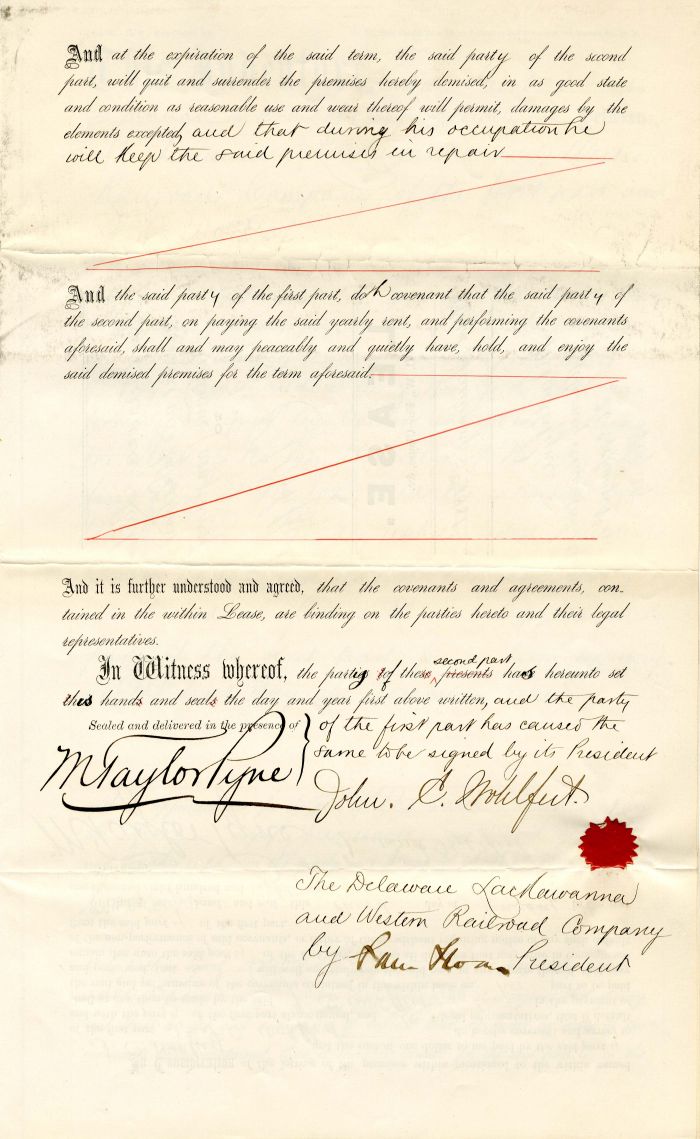 And at the expiration of the said term, the said party of the second
part, will quit and surrender the premises hereby demised, in as good state
and condition as reasonable use and wear thereof will permit, damages by the
elements excepted, and that during his occupation he
will keep the said premises in repair
And the said party of the first part, doth covenant that the said party of
the second part, on paying the said yearly rent, and performing the covenants
aforesaid, shall and may peaceably and quietly have, hold, and enjoy the
said demised premises for the term aforesaid.
And it is further understood and agreed, that the covenants and agreements, con-
tained in the within Lease, are binding on the parties hereto and their legal
representatives.
second part
In Witness whereof, the party of these presents has hereunto set
his hand and seal the day and year first above written, and the party
Sealed and delivered in the presence of
of the first part has caused the
same to be signed by its President
M Taylor Pyne
John. C. Wohlfert.
The Delaware Lackawanna
and Western Railroad Company
by Sam Sloan President